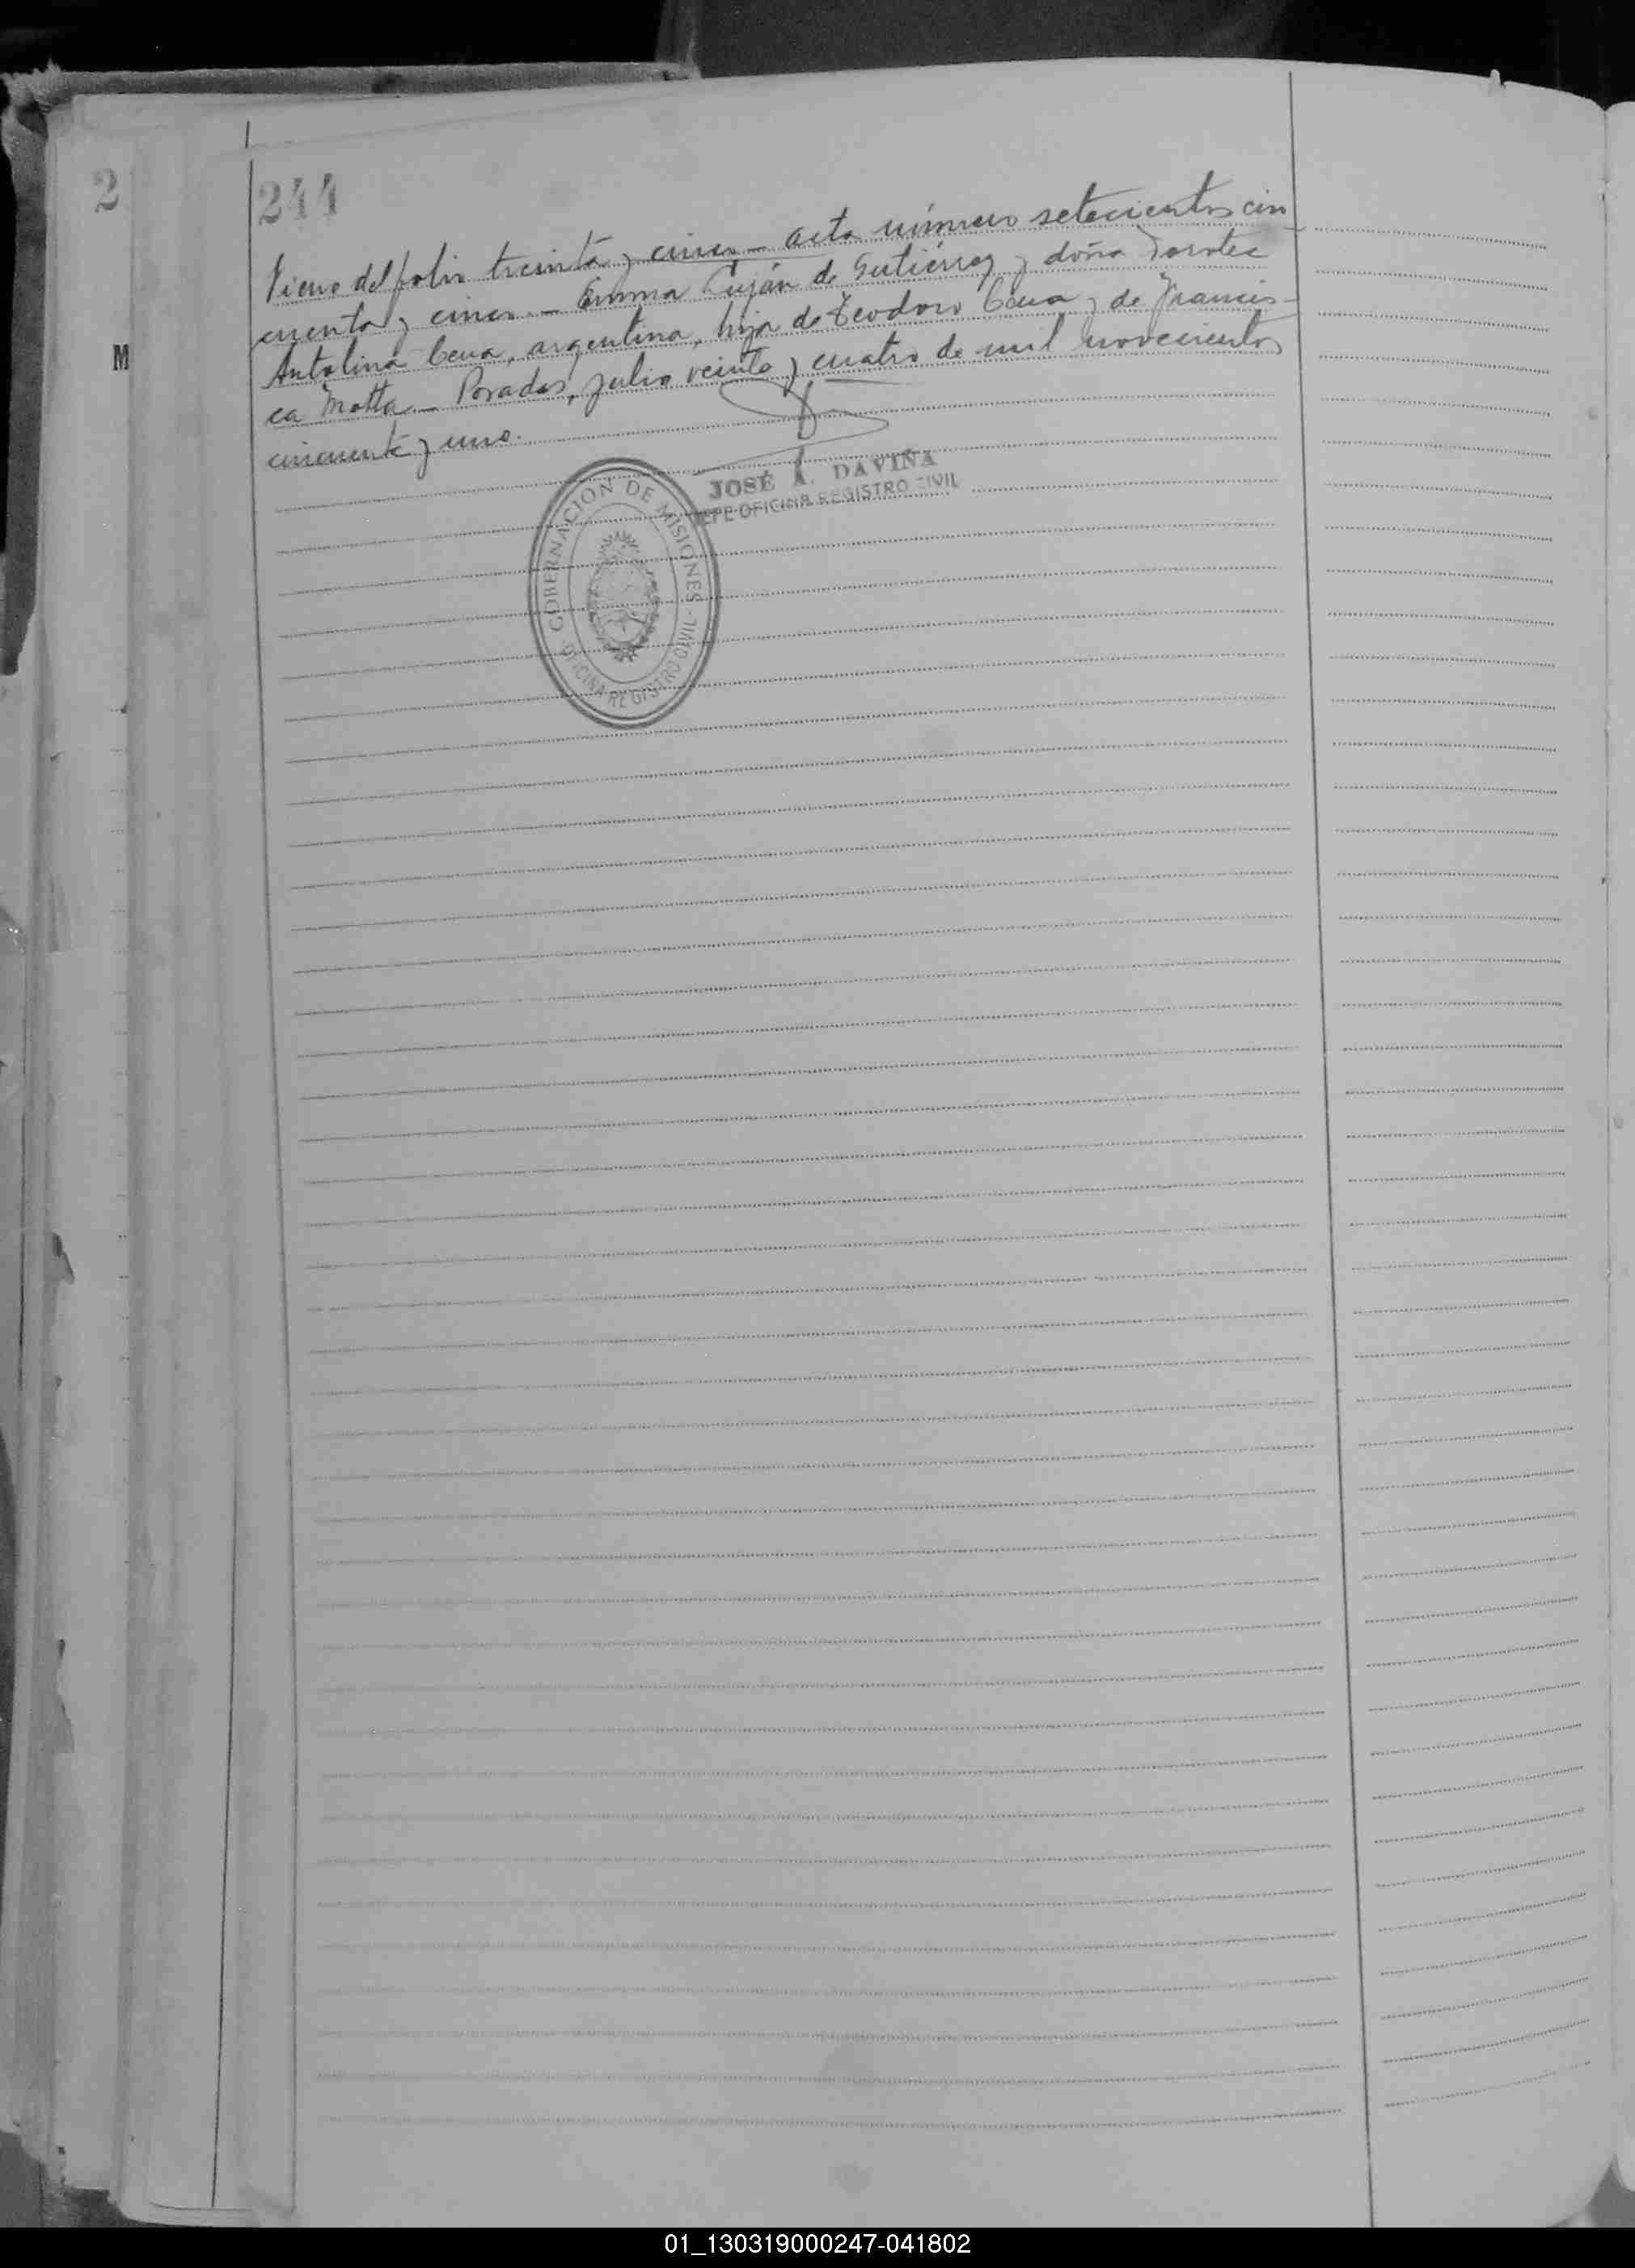 2
244
Viene del folio treinta y cinco - acta número setecientos cin
cuenta y cinco. - Emma Luján de Gutiérrez y doña Dorotea
Antolina Cena, argentina, hija de Teodoro Cena y de Francis-
ca Motta. - Posadas, julio veinte y cuatro de mil novecientos
cincuenta y uno.
M
JOSÉ A. DAVIÑA
JEFE OFICINA REGISTRO CIVIL
GOBERNACION DE MISIONES
OFICINA REGISTRO CIVIL
01_130319000247-041802